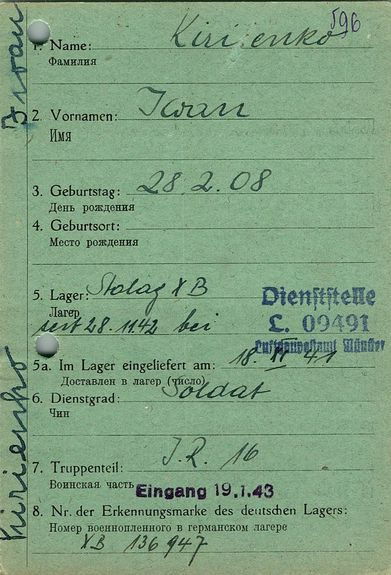 596
1. Name: Kirijenko
Фамилия
2. Vornamen: Iwan
Имя
3. Geburtstag: 28.2.08
День рождения
4. Geburtsort:
Место рождения
5. Lager: Stalag XB
Лагер
seit 28.11.42 bei
Dienststelle
L. 09491
Luftgaupostamt Münster
5a. Im Lager eingeliefert am: 18. 41
Доставлен в лагер (число)
6. Dienstgrad: Soldat
Чин
7. Truppenteil: I.R. 16
Воинская часть
Eingang 19.1.43
8. Nr. der Erkennungsmarke des deutschen Lagers:
Номер военнопленного в германском лагере
XB 136947
Kirienko Iwan